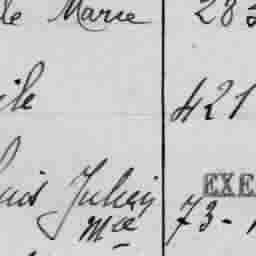 de Marie 28
ile 421
Julien EXE
Mce 73-